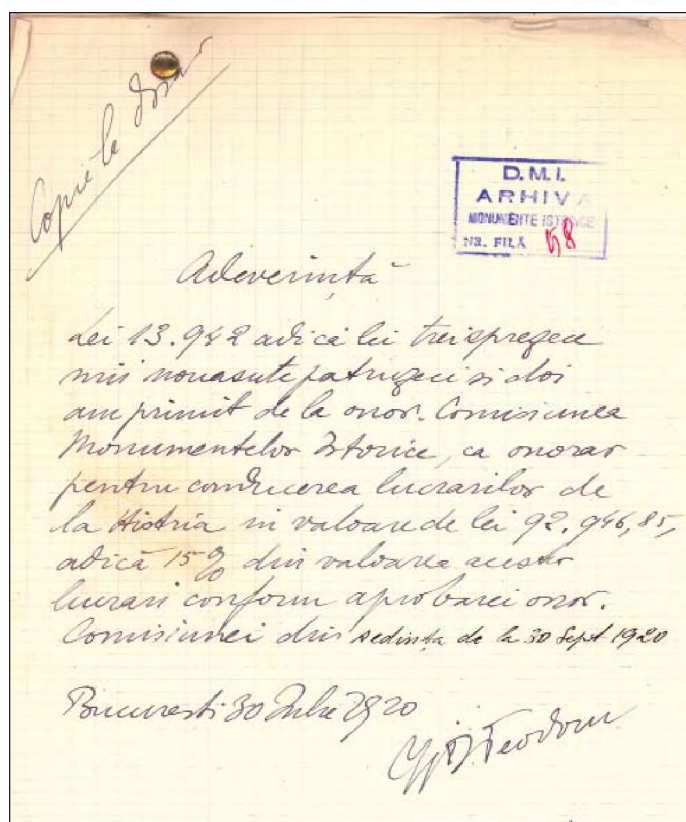 Copie la dosar
D.M.I.
ARHIVA
MONUMENTE ISTORICE
NR. FILĂ 58
Adeverință
Lei 13.942 adică lei treisprezece
mii nouăsute patruzeci si doi
am primit de la onor. Comisiunea
Monumentelor Istorice, ca onorar
pentru conducerea lucrarilor de
la Histria in valoare de lei 92.946,85,
adică 15% din valoarea acestor
lucrari conform aprobarei onor.
Comisiunei din sedința de la 30 Sept 1920
Bucuresti 30 1920